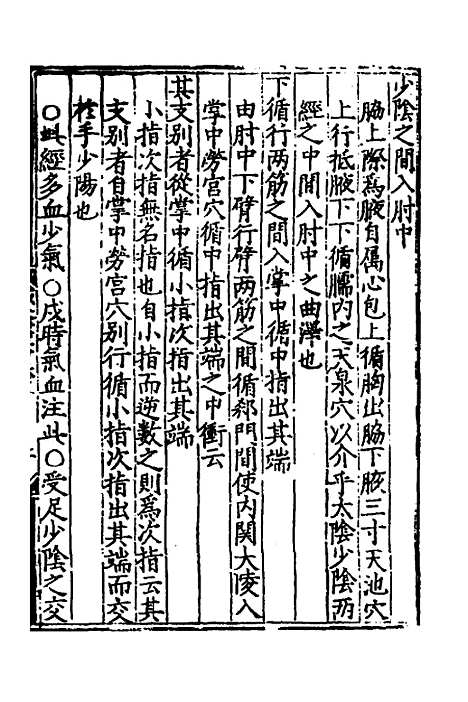 少陰之間入肘中
脇上際爲腋自属心包上循胸出脇下腋三寸天池穴
上行抵腋下下循臑內之天泉穴以介乎太陰少陰两
經之中間入肘中之曲澤也
下循行两筋之間入掌中循中指出其端
由肘中下臂行臂两筋之間循郄門間使内関大陵入
掌中勞宫穴循中指出其端之中衝云
其支别者從掌中循小指次指出其端
小指次指無名指也自小指而逆數之則爲次指云其
支别者自掌中勞宫穴别行循小指次指出其端而交
於手少陽也
○此經多血少氣○戌時氣血注此○受足少陰之交